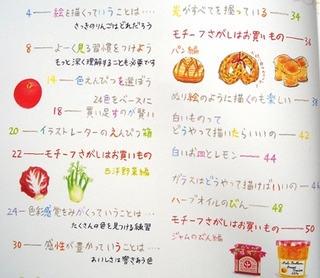 4 — 絵を描くっていうことは……
さっきのりんごはどれだろう
8 — よーく見る習慣をつけよう
もっと深く理解することも必要です
14 — 色えんぴつを選ぼう
24色をベースに
18 — 買い足すのが賢い
20 — イラストレーターのえんぴつ箱
22 — モチーフさがしはお買いもの
西洋野菜編
24 — 色彩感覚をみがくっていうことは…
たくさんの色を見つける練習
30 — 感性が豊かっていうことは…
おいしさは響きあう色
光がすべてを握っている — 34
モチーフさがしはお買いもの — 36
パン編
ぬり絵のように描くのも楽しい — 38
白いものって
どうやって描いたらいいの — 42
白いお皿とレモン — 44
ガラスはどうやって描けばいいの
ハーブオイルのびん — 48
モチーフさがしはお買いもの — 50
ジャムのびん編